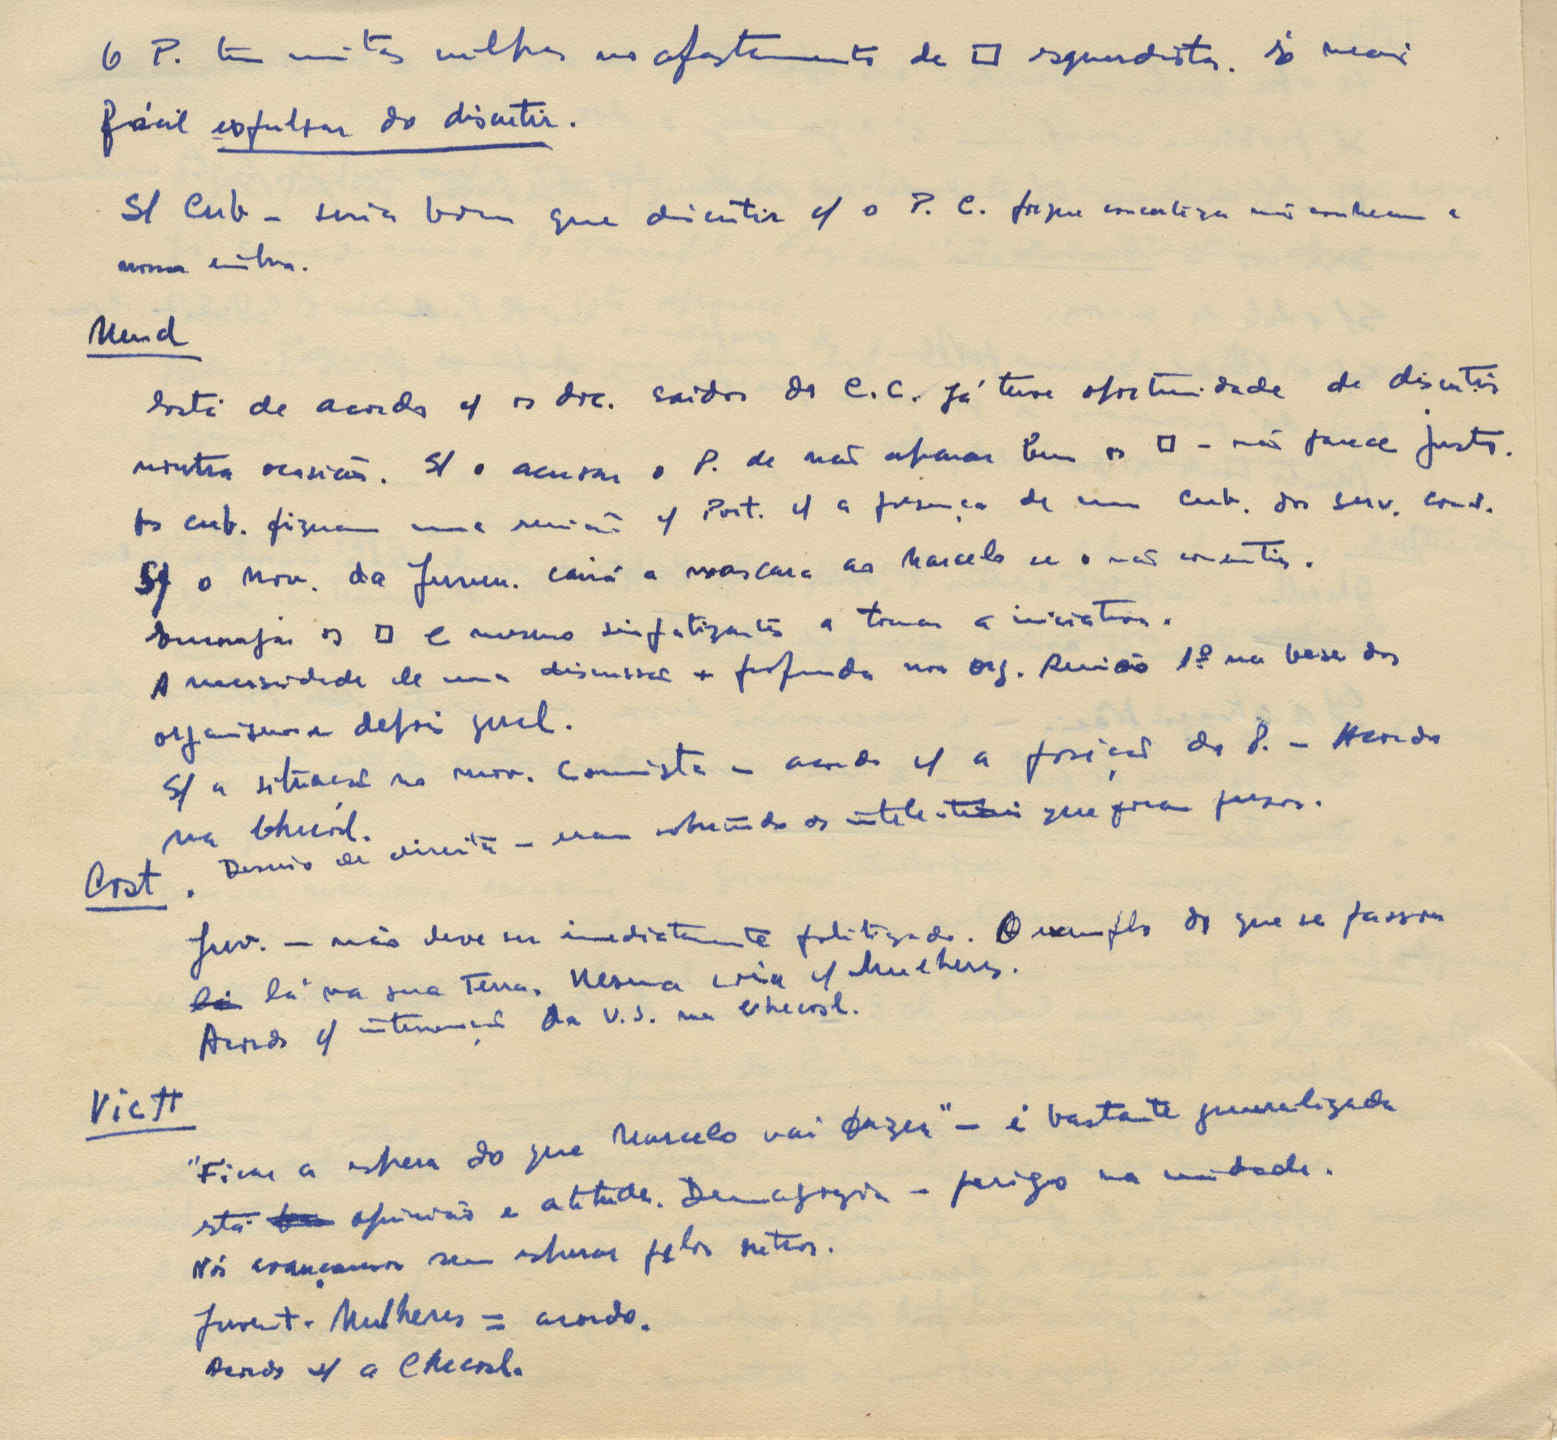 O P. tem muitas culpas no afastamento de □ esquerdistas. É mais
fácil expulsar do discutir.
S/ Cub – seria bom que discutir c/ o P. C. porque concerteza não conhecem a
nossa
Mend
Está de acordo c/ os doc. saidos do C.C. já teve oportunidade de discutir
noutra ocasião. S/ o acusar o P. de não apoiar bem os □ – não parece justo.
Os cub. fizeram uma reunião c/ Port. c/ a presença de um cub. dos serv. cons.
S/ o mov. da Juven. cairá a mascara ao Marcelo se o não consentir.
Encorajar os □ e mesmo simpatizantes a tomar a iniciativa.
A necessidade de uma discussão + profunda nos org. Reunião 1º na base dos
organismos e depois geral.
S/ a situação no mov. Comunista – acordo c/ a posição do P. – Acordo
na Checosl.
Cost. Desvio de direita – eram sobretudo os intelectuais que foram presos.
Juv. – não deve ser imediatamente politizado. O exemplo do que se passou
lá lá na sua terra. Mesma coisa c/ Mulheres.
Acordo c/ intervenção da U.S. na Checosl.
Vict
"Ficar a espera do que Marcelo vai fazer" – é bastante generalizada
esta opinião e atitude. Demagogia – perigo na unidade.
Nós avançamos sem esperar pelos outros.
Juvent. Mulheres = acordo.
Acordo c/ a Checosl.